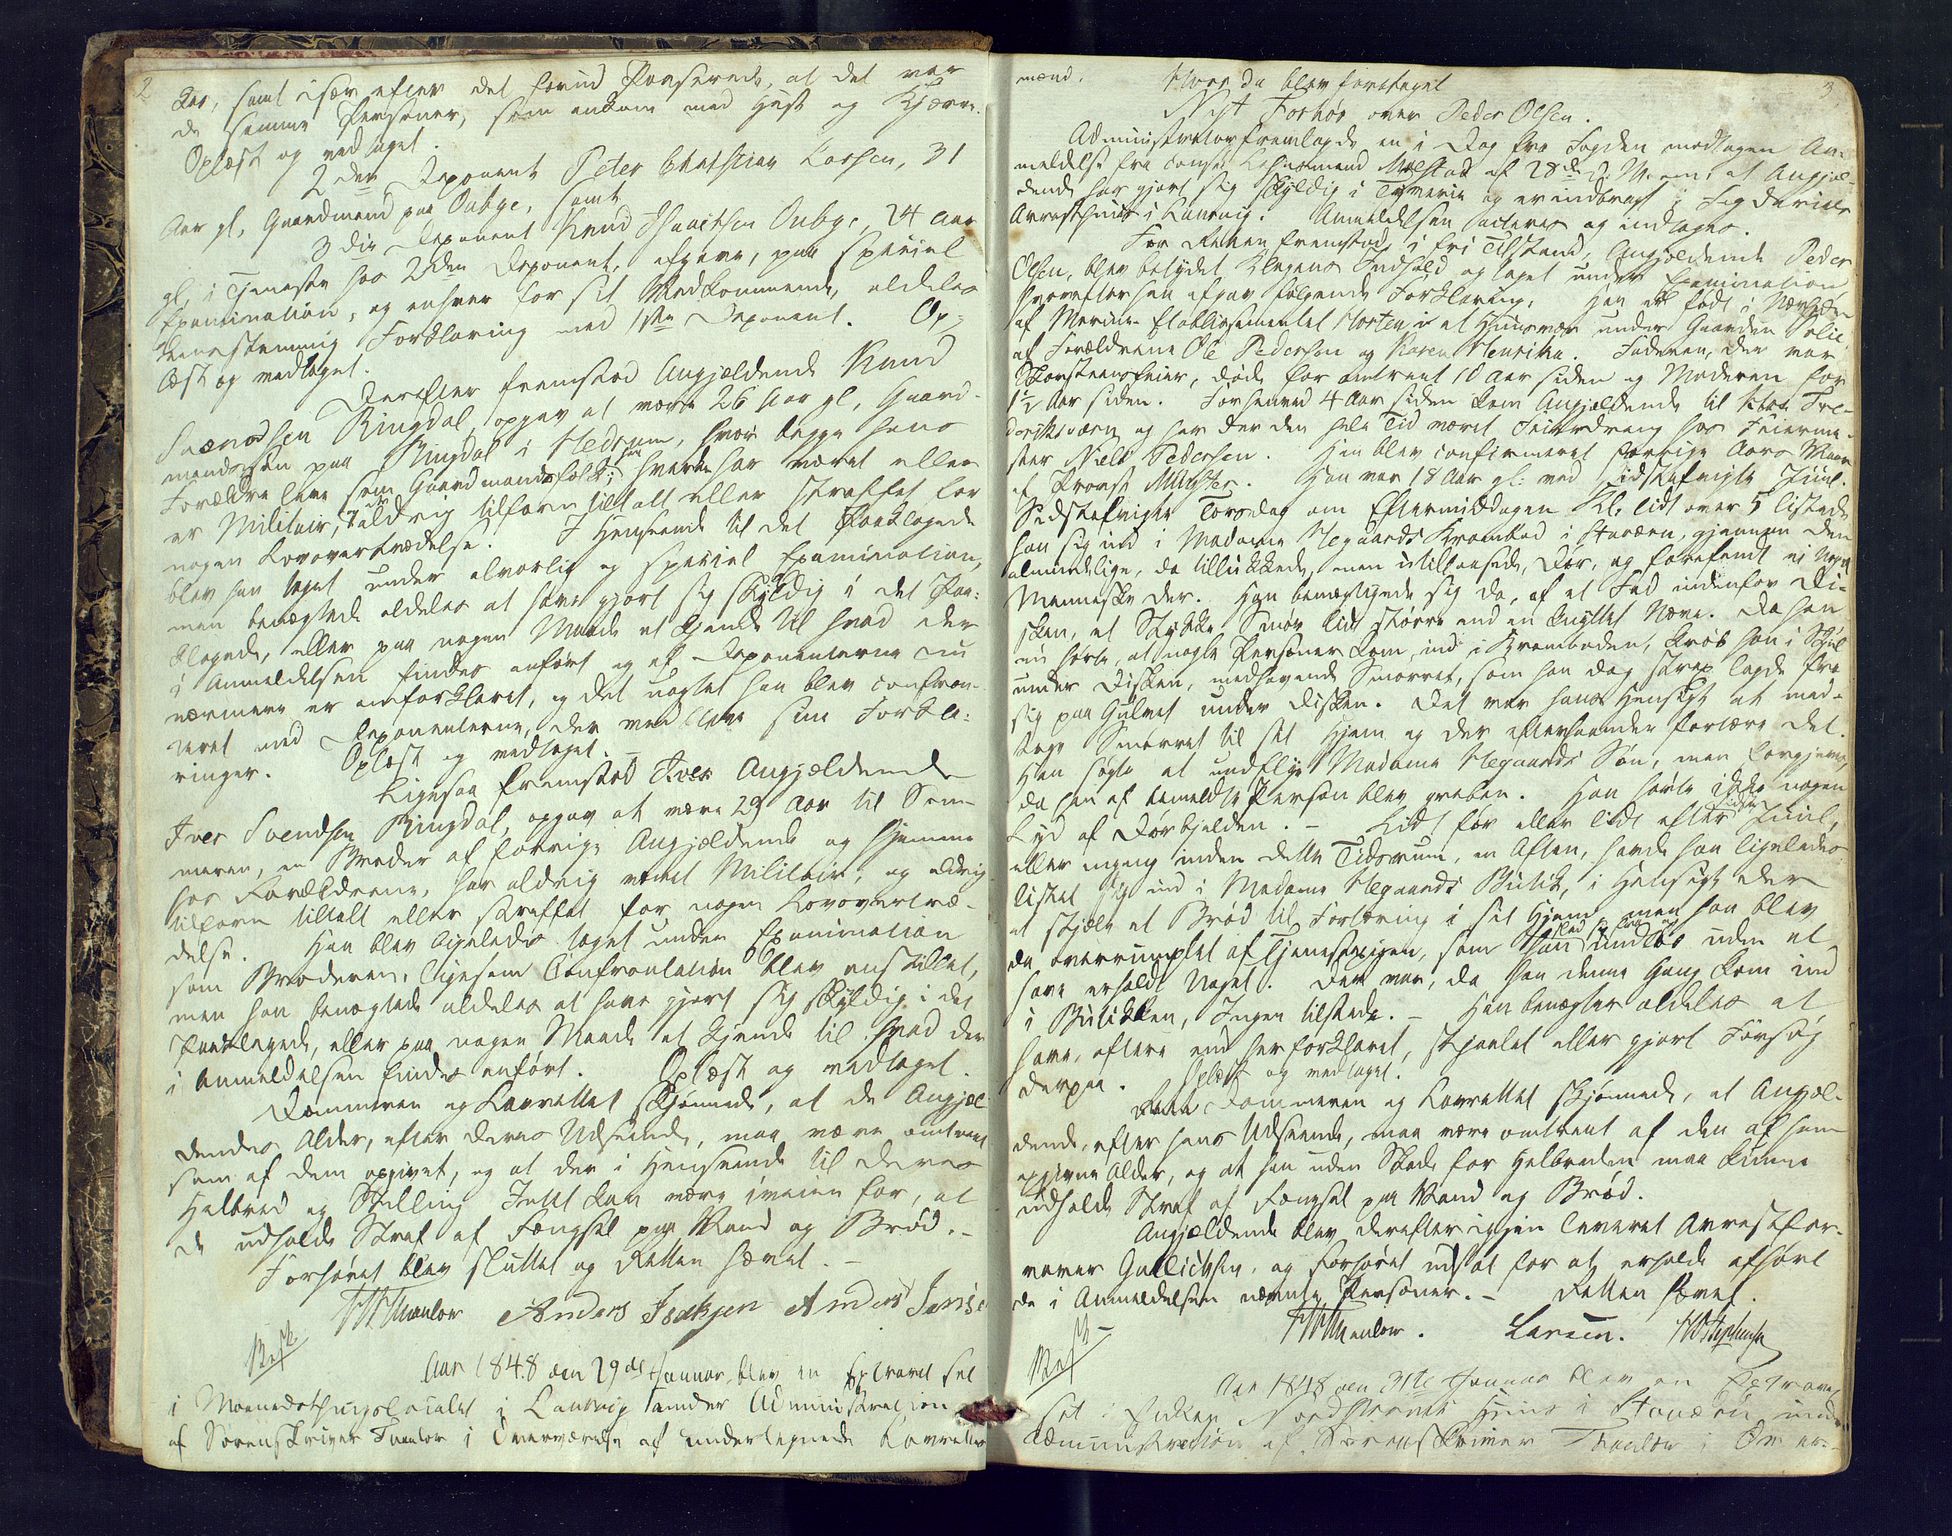 2
Aar, samt især efter det forud Passerede, at det var
de samme Personer, som ankom med Hest og Kjærre.
Oplæst og vedtaget.
2den Deponent Peter Christian Larsen, 31
Aar gl, Gaardmand paa Oubye, samt
3die Deponent Knud Oubye, 24 Aar
gl, i Tjeneste hos 2den Deponent, afgave, paa speciel
Examination, og enhver for sit Vedkommende, aldeles
eenstemmig Forklaring med 1ste Deponent. Op-
læst og vedtaget.
Derefter fremstod Angjældende Knud
Svendsen Ringdal, opgav at være 26 Aar gl, Gaard-
mandssøn paa Ringdal i Hedrum, hvor begge hans
Forældre leve som Gaardmandsfolk; han hverken har været eller
er Militair, aldrig tilforn tiltalt eller straffet for
nogen Lovovertrædelse. I Henseende til det Paaklagede
blev han taget under alvorlig og speciel Examination,
men benægtede aldeles at have gjort sig skyldig i det Paa-
klagede, eller paa nogen Maade at kjende til hvad der
i Anmeldelsen findes anført og af Deponenterne nu
nærmere er anforklaret, og det uagtet han blev confron-
teret med Deponenterne, der vedbleve sine Forkla-
ringer. Oplæst og vedtaget. –
Ligesaa fremstod Iver Angjældende
Iver Svendsen Ringdal, opgav at være 29 Aar til Som-
meren, en Broder af forrige Angjældende og hjemme
hos Forældrene, har aldrig været Militair, og aldrig
tilforn tiltalt eller straffet for nogen Lovovertræ-
delse. Han blev ligeledes taget under Examination
som Broderen, ligesom Confrontation og blev anstillet,
men han benægtede aldeles at have gjort sig skyldig i det
Paaklagede, eller paa nogen Maade at kjende til hvad der
i Anmeldelsen findes anført. Oplæst og vedtaget.
Dommeren og Laurettet skjønnede, at de Angjæl-
dendes Alder, efter deres Udseende, maa være omtrent
som af dem opgivet, og at der i Henseende til deres
Helbred og Stilling Intet kan være iveien for, at
de udholde Straf af Fængsel paa Vand og Brød. –
Forhøret blev sluttet og Retten hævet. –
Thaulow Anders Isaksen Anders
Aar 1848 den 29de Januar, blev en Extraret sat
i Maanedsthingslocalet i Laurvig under Administration
af Sorenskriver Thaulow i Overværelse af undertegnede Lavrettes-
3
mænd. Hvor da blev foretaget
Nyt Forhør over Peder Olsen.
Administrator fremlagde en i Dag fra Fogden modtagen An-
meldelse fra constitueret Lehnsmand af 28de d. M. om, at Angjæl-
dende har gjort sig skyldig i Tyverie og er indbragt i
Arresthuset i Laurvig. Anmeldelsen acteres og indtages.
For Retten fremstod i fri Tilstand, Angjældende Peder
Olsen, blev betydet Klagens Indhold og taget under Examination,
hvorefter han afgav følgende Forklaring: Han er født i Nærheden
af Marine Etablissementet Horten i et Huusvær under Gaarden
af Forældrene Ole Pedersen og Karen Henrikke. Faderen, der var
Skorsteensfeier, døde for omtrent 10 Aar siden og Moderen for
1½ Aar siden. For henved 4 Aar siden kom Angjældende til Fre-
deriksværn og har der den hele Tid været Feierdreng hos Feierme-
ster Niels Pedersen. Han blev confirmeret forrige Aars
af Provst Münster. Han var 18 Aar gl: ved sidstafvigte Juul.
Sidstafvigte Torsdag om Eftermiddagen Kl. lidt over 5 listede
han sig ind i Madame Hegaards Krambod i Stavern, gjennem den
almindelige, da tillukkede, men utillaasede, Dør, og forefandt ei Noget
Menneske der. Han bemægtigede sig da, af et Fad indenfor Di-
sken, et Stykke Smør lidt større end en knyttet Næve. Da han
nu hørte, at nogle Personer kom ind i Kramboden, krøb han i Skjul
under Disken, medhavende Smørret, som han dog strax lagde fra
sig paa Gulvet under Disken. Det var hans Hensigt at med-
tage Smørret til sit Hjem og der efterhaanden fortære det.
Han søgte at undflye Madame Hegaards Søn, men forgjæves,
da han af bemeldte Person blev greben. Han hørte ikke nogen
Lyd af Dørbjelden. – Lidt før eller lidt efter sidste Juul,
eller engang inden dette Tidsrum, en Aften, havde han ligeledes
listet sig ind i Madame Hegaards Butik, i Hensigt der
at stjæle et Brød til Fortæring i sit Hjem, men han blev
da overrumplet af Tjenestepigen, som han undløb uden at
have erholdt Noget. Der var, da han denne Gang kom ind
i Butikken, Ingen tilstede. – Han benægter aldeles at
have, oftere end her forklaret, stjaalet eller gjort Forsøg
derpaa. Oplæst og vedtaget.
Dommeren og Lavrettet skjønnede, at Angjæl-
dende, efter hans Udseende, maa være omtrent af den af ham
opgivne Alder, og at han uden Skade for Helbreden maa kunne
udholde Straf af Fængsel paa Vand og Brød.
Angjældende blev derefter igjen leveret Arrestfor-
varer Gullichsen, og Forhøret udsat for at erholde afhørt
de i Anmeldelsen nævnte Personer. – Retten hævet.
Thaulow. Larsen.
Aar 1848 den 31te Januar blev en Extraret
sat i Enken Nordstrøms Huus i Stavern under
Administration af Sorenskriver Thaulow i Overvæ-